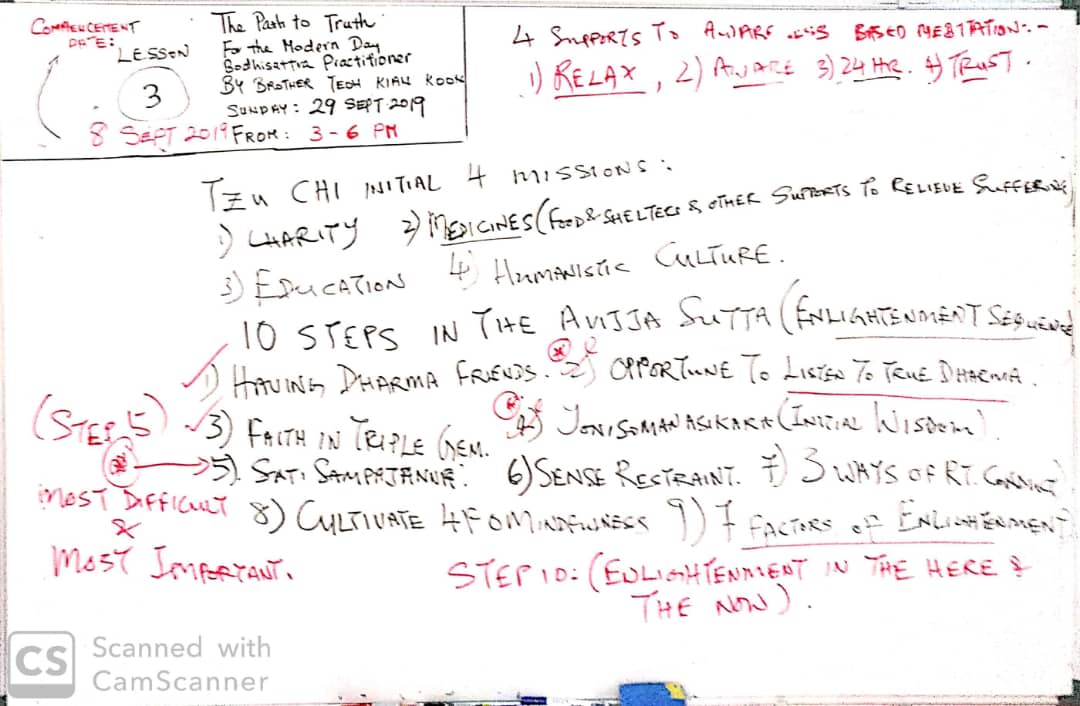 COMMENCEMENT DATE:
LESSON
3
8 SEPT 2019
The Path to Truth
For the Modern Day
Bodhisattva Practitioner
BY BROTHER TEOH KIAN KOON
SUNDAY: 29 SEPT 2019
FROM: 3-6 PM
4 SUPPORTS To AWARE NESS BASED MEDITATION:-
1) RELAX, 2) AWARE 3) 24 HR. 4) TRUST.
TZU CHI INITIAL 4 MISSIONS:
1) CHARITY 2) MEDICINES (FOOD & SHELTERS & OTHER SUPPORTS To RELIEVE SUFFERING)
3) EDUCATION 4) HUMANISTIC CULTURE.
10 STEPS IN THE AVIJJA SUTTA (ENLIGHTENMENT SEQUENCE
1) HAVING DHARMA FRIENDS. 2) OPPORTUNE To LISTEN To TRUE DHARMA.
(STEP 5) 3) FAITH IN TRIPLE GEM. 4) YONISOMANASIKARA (INITIAL WISDOM).
5). SATI SAMPAJANNA. 6) SENSE RESTRAINT. 7) 3 WAYS OF RT. CONDUCT
MOST DIFFICULT 8) CULTIVATE 4 F OMINDFULNESS 9) 7 FACTORS OF ENLIGHTENMENT
&
MOST IMPORTANT.
STEP 10: (ENLIGHTENMENT IN THE HERE &
THE NOW).
CS Scanned with
CamScanner